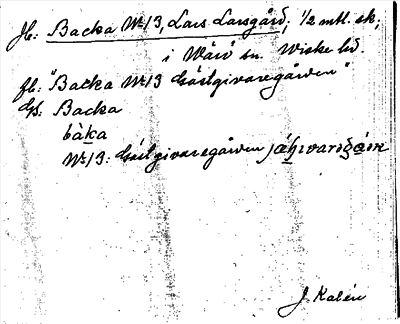 Jb: Backa Nr 13, Lars Larsgård; 1/2 mtl. sk;
i Wärö sn. Wiske hd.
fb: "Backa Nr 13 Gästgivaregården"
Gs: Backa
bàka
Nr 13: Gästgivaregården
J. Kalén